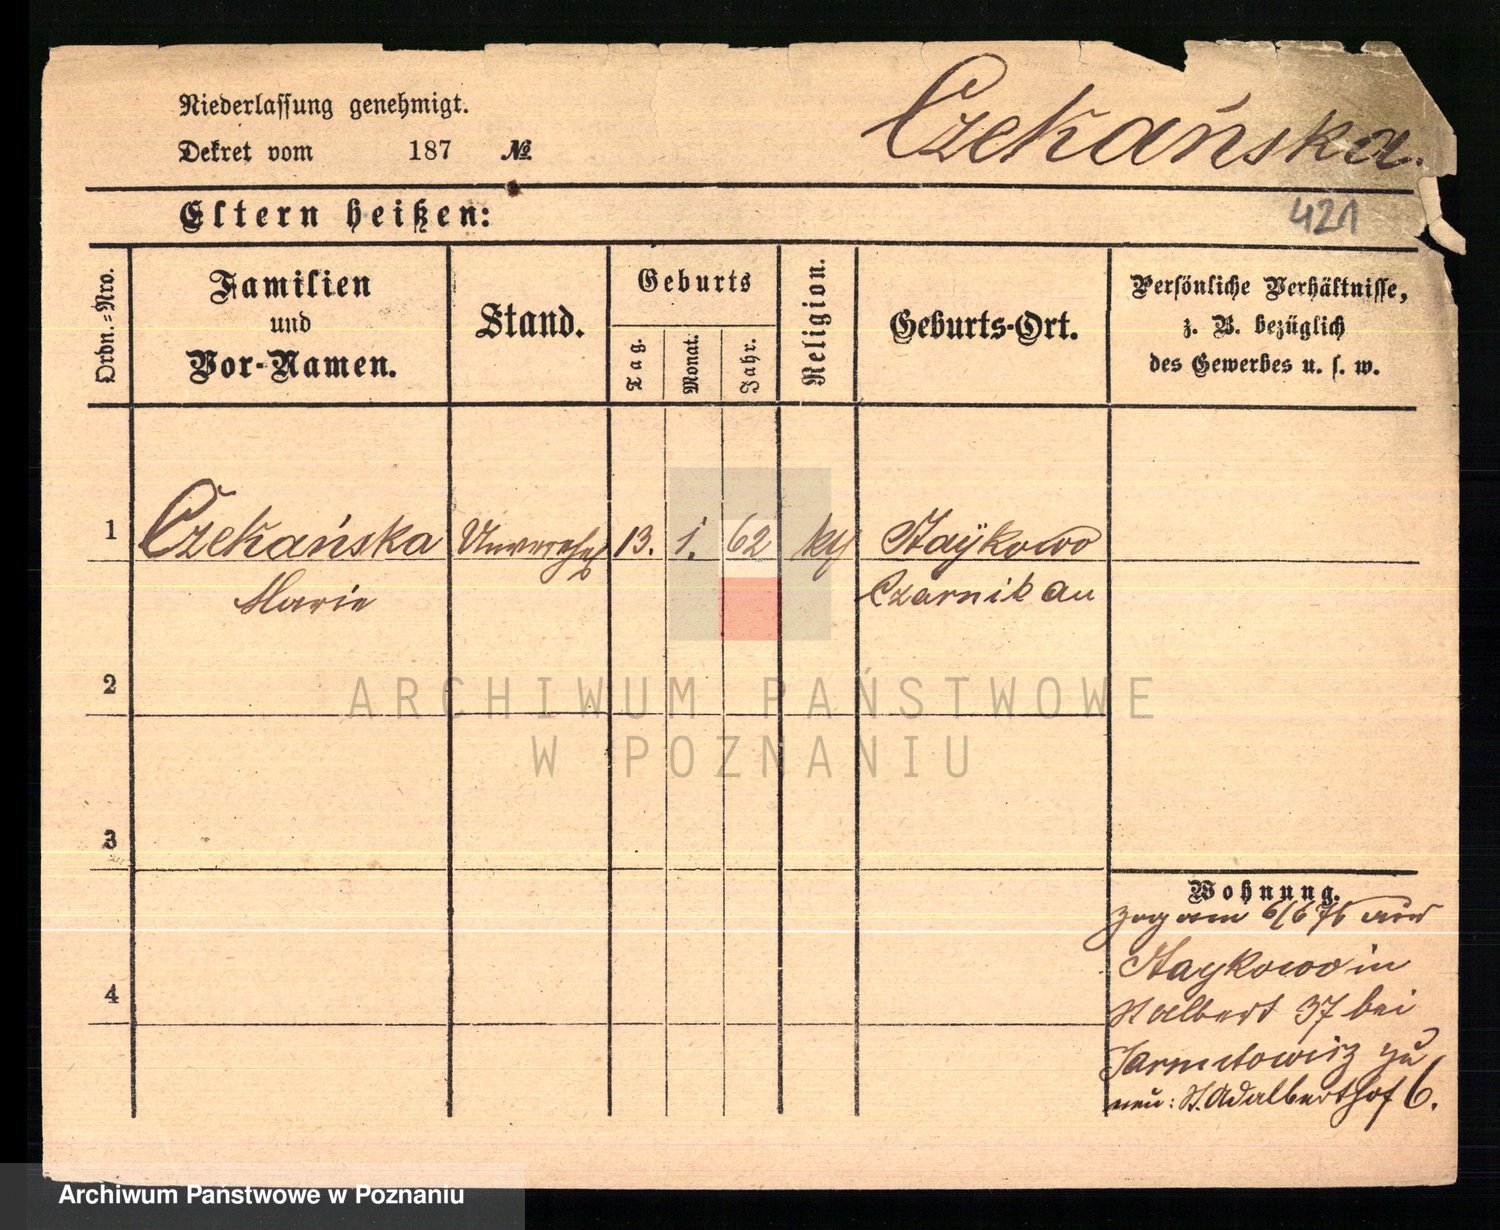 Niederlassung genehmigt.
Dekret vom 187 №
Czekańska.
Eltern heißen:
421
Ordn.-Nro.
Familien
und
Vor-Namen.
Stand.
Geburts
Tag.
Monat.
Jahr.
Religion.
Geburts-Ort.
Persönliche Verhältnisse,
z. B. bezüglich
des Gewerbes u. s. w.
1 Czekańska 13. 1. 62
Marie Czarnikau
2
ARCHIWUM PAŃSTWOWE
W POZNANIU
3
Wohnung.
zog am 6/6 76 aus
in
4
Adalbert 37 bei
zu
neu: St. Adalberthof 6.
Archiwum Państwowe w Poznaniu